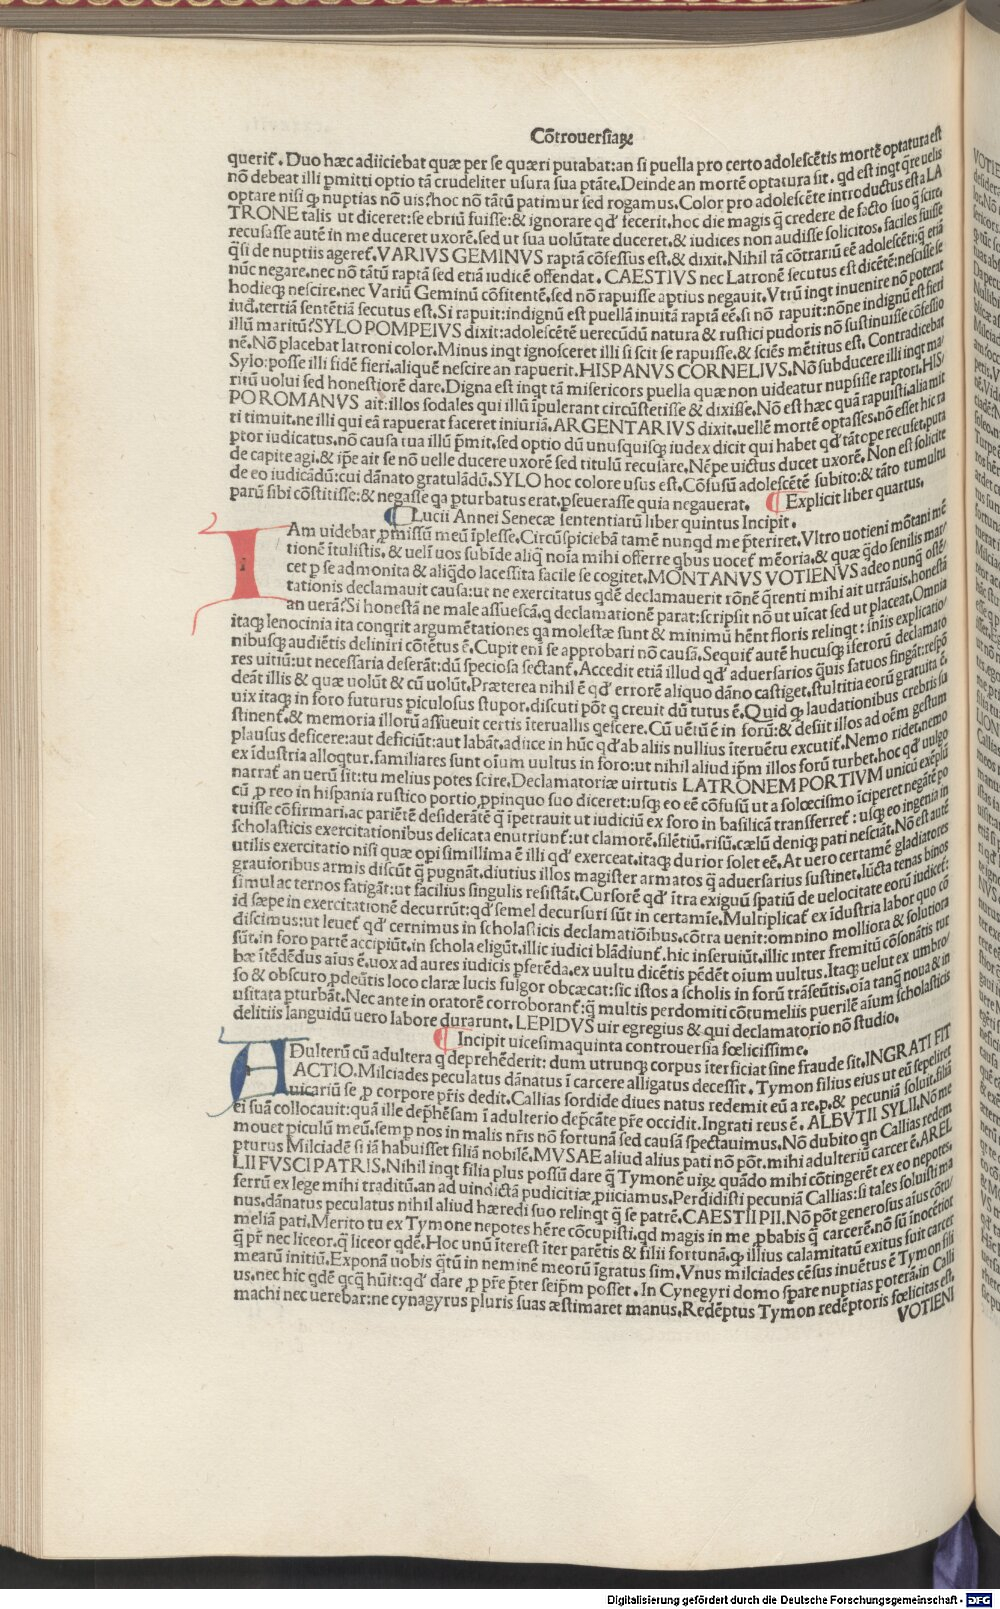 Cōtrouersiaꝝ
querit̃. Duo hæc adiiciebat quæ per se quæri putabat:an si puella pro certo adolescētis mortē optatura est
nō debeat illi ꝑmitti optio tā crudeliter usura sua ptāte. Deinde an mortē optatura sit. qd est inqt q̄re uelis
optare nisi ꝙ nuptias nō uis?hoc nō tātū patimur sed rogamus. Color pro adolescēte introductus est a LA
TRONE talis ut diceret:se ebriū fuisse:& ignorare qd' fecerit.hoc die magis q̄ credere de facto suo q̄ scire.
recusasse autē in me duceret uxorē.sed ut sua uolūtate duceret.& iudices non audisse solicitos. faciles fuisse
q̄si de nuptiis ageret̃. VARIVS GEMINVS raptā cōfessus est.& dixit. Nihil tā cōtrariū eē adolescēti:q̄ etiā
nūc negare.nec nō tātū raptā sed etiā iudicē offendat. CAESTIVS nec Latronē secutus est dicētē:nescisse se
hodieq; nescire.nec Variū Geminū cōfitentē.sed nō rapuisse aptius negauit. Vtrū inqt inuenire nō poterat
iud.tertiā sentētiā secutus est. Si rapuit:indignū est puellā inuitā raptā eē.si nō rapuit:nōne indignū est fieri
illū maritū?SYLO POMPEIVS dixit:adolescētē uerecūdū natura & rustici pudoris nō sustinuisse cōfessio
nē. Nō placebat latroni color. Minus inqt ignosceret illi si scit se rapuisse.& sciēs mētitus est. Contradicebat
Sylo:posse illi fidē fieri.aliquē nescire an rapuerit. HISPANVS CORNELIVS. Nō subducere illi inqt ma/
ritū uolui sed honestiorē dare. Digna est inqt tā misericors puella quæ non uideatur nupsisse raptori. HIS/
PO ROMANVS ait:illos sodales qui illū īpulerant circūstetisse & dixisse. Nō est hæc quā rapuisti.alia mit
ti timuit.ne illi qui eā rapuerat faceret iniuriā. ARGENTARIVS dixit.uellē mortē optasses.nō esset hic ra
ptor iudicatus.nō causa tua illū ꝑmit.sed optio dū unusquisq; iudex dicit qui habet qd' tātope recuset.puta
de capite agi.& ip̄e ait se nō uelle ducere uxorē sed titulū recusare. Nēpe uictus ducet uxorē. Non est solicite
de eo iudicādū:cui dānato gratulādū. SYLO hoc colore usus est. Cōfusū adolescētē subito:& tāto tumultu
parū sibi cōstitisse:& negasse qa ꝑturbatus erat.ꝑseuerasse quia negauerat. ¶ Explicit liber quartus.
¶ Lucii Annei Senecæ sententiarū liber quintus Incipit.
IAm uidebar ꝓmissū meū īplesse. Circūspiciebā tamē nunqd me p̄teriret. Vltro uotieni mōtani mē
tionē ītulistis.& uelī uos subīde aliq̄ noīa mihi offerre qbus uocet̃ mēoria.& quæ q̄do senilis mar/
cet p se admonita & aliq̄do lacessita facile se cogitet. MONTANVS VOTIENVS adeo nunq̄ ostē/
tationis declamauit causa:ut ne exercitatus qdē declamauerit rōnē q̄renti mihi ait utrāuis.honestā
an uerā?Si honestā ne male assuescā.q declamationē parat:scripsit nō ut uicat sed ut placeat. Omnia
itaq; lenocinia ita conqrit argumētationes qa molestæ sunt & minimū hēnt floris relinqt : sniis explicatio/
nibusq; audiētis deliniri cōtētus ē. Cupit enī se approbari nō causā. Sequit̃ autē hucusq; īferorū declamato
res uitiū:ut necessaria deserāt:dū speciosa sectant̃. Accedit etiā illud qd' aduersarios q̄uis fatuos fingāt:respō
deāt illis & quæ uolūt & cū uolūt. Præterea nihil ē qd' errorē aliquo dāno castiget.stultitia eorū gratuita ē.
uix itaq; in foro futurus ꝑiculosus stupor.discuti pōt q creuit dū tutus ē. Quid ꝙ laudationibus crebris su
stinent̃.& memoria illorū assueuit certis īteruallis qescere. Cū uētū ē in forū:& desiit illos ad oēm gestum
plausus deficere:aut deficiūt:aut labāt.adiice in hūc qd' ab aliis nullius īteruētu excutit̃. Nemo ridet.nemo
ex īdustria alloqtur.familiares sunt oīum uultus in foro:ut nihil aliud ip̄m illos forū turbet.hoc qd' uulgo
narrat̃ an uerū sit:tu melius potes scire. Declamatoriæ uirtutis LATRONEM PORTIVM unicū exēplū
cū ꝓ reo in hispania rustico portio ꝓpinquo suo diceret:usq; eo eē cōfusū ut a solœcismo īciperet negātē po
tuisse cōfirmari.ac pariētē desiderātē q̄ īpetrauit ut iudiciū ex foro in basilicā transferret̃ : usq; eo ingenia in
scholasticis exercitationibus delicata enutriunt̃:ut clamorē.silētiū.risū.cælū deniq; pati nesciāt. Nō est autē
utilis exercitatio nisi quæ opi simillima ē illi qd' exerceat.itaq; durior solet eē. At uero certamē gladiatores
grauioribus armis discūt q̄ pugnāt.diutius illos magister armatos q̄ aduersarius sustinet.lūcta tenas binos
simul ac ternos fatigāt:ut facilius singulis resistāt. Cursorē qd' ītra exiguū spatiū de uelocitate eorū iudicet̃:
id sæpe in exercitationē decurrūt:qd' semel decursuri sūt in certamīe. Multiplicat̃ ex īdustria labor quo cō
discimus:ut leuet̃ qd' cernimus in scholasticis declamatiōibus.cōtra uenit:omnino molliora & solutiora
sūt.in foro partē accipiūt.in schola eligūt.illic iudici blādiunt̃.hic inseruiūt.illic inter fremitū cōsonātis tur
bæ ītēdēdus aīus ē.uox ad aures iudicis ꝑferēda.ex uultu dicētis pēdēt oīum uultus. Itaq; uelut ex umbro/
so & obscuro ꝓdeūtis loco claræ lucis fulgor obcæcat:sic istos a scholis in forū trāseūtis.oīa tanq̄ noua & in
usitata ꝑturbāt. Nec ante in oratorē corroborant̃:q̄ multis perdomiti cōtumeliis puerilē aīum scholasticis
delitiis languidū uero labore durarunt. LEPIDVS uir egregius & qui declamatorio nō studio.
¶ Incipit uicesimaquinta controuersia fœlicissime.
ADulterū cū adultera q̄ deprehēderit: dum utrunq; corpus īterficiat sine fraude sit. INGRATI FIT
ACTIO. Milciades peculatus dānatus ī carcere alligatus decessit. Tymon filius eius ut eū sepeliret
uicariū se ꝓ corpore pr̄is dedit. Callias sordide diues natus redemit eū a re.p.& pecuniā soluit.filiā
ei suā collocauit:quā ille dep̄hēsam ī adulterio dep̄cāte pr̄e occidit. Ingrati reus ē. ALBVTII SYLII. Nō me
mouet ꝑiculū meū.semp nos in malis nr̄is nō fortunā sed causā spectauimus. Nō dubito qn Callias redem
pturus Milciadē si iā habuisset filiā nobilē. MVSAE aliud alius pati nō pōt.mihi adulteriū carcer ē. AREL
LII FVSCI PATRIS. Nihil inqt filia plus possū dare q̄ Tymonē uirꝝ quādo mihi cōtingerēt ex eo nepotes.
ferrū ex lege mihi traditū.an ad uindictā pudicitiæ ꝓiiciamus. Perdidisti pecuniā Callias:si tales soluisti ma
nus.dānatus peculatus nihil aliud hæredi suo relinqt q̄ se patrē. CAESTII PII. Nō pōt generosus aīus cōtu/
meliā pati. Merito tu ex Tymone nepotes hēre cōcupisti.qd magis in me ꝓbabis q̄ carcerē.nō sū īnocētior
q̄ pr̄ nec liceor.q̄ liceor qdē. Hoc unū īterest īter parētis & filii fortunā.ꝙ illius calamitatū exitus fuit carcer
mearū initiū. Exponā uobis q̄tū in neminē meorū īgratus sim. Vnus milciades cēsus inuētus ē Tymon fili
us.nec hic qdē qcq̄ hūit:qd' dare ꝓ pr̄e p̄ter seip̄m posset. In Cynegyri domo sp̄are nuptias poterā.in Calli
machi nec uerebar:ne cynagyrus pluris suas æstimaret manus. Redēptus Tymon redēptoris fœlicitas est.
VOTIENI
Digitalisierung gefördert durch die Deutsche Forschungsgemeinschaft - DFG